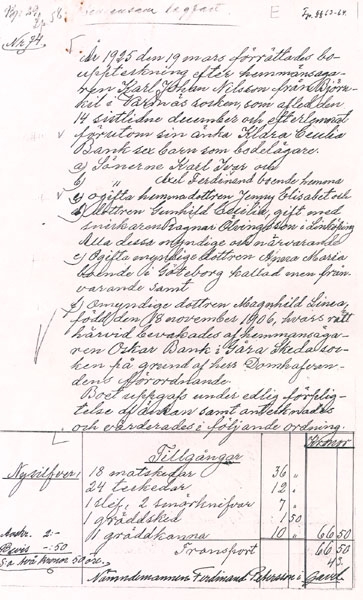 No 74.
År 1925 den 19 mars förrättades bo-
uppteckning efter hemmansäga-
ren Karl Johan Nilsson från Björn-
kil i Värnäs socken, som afled den
14 sistlidne december och efterlemnat
förutom sin änka Klara Cecilia
Bank sex barn som bodelägare.
a) Sönerne Karl Ivar och
b) " Axel Ferdinand boende hemma
c) ogifta hemmadottren Jenny Elisabet och
d) Dottren Gunhild Cecilia, gift med
snickaren Ragnar i Linköping
Alla dessa myndige och närvarande
e) Ogifta myndige dottren Anna Maria
boende i Göteborg kallad men från-
varande samt
f) Omyndige dottren Magnhild Linea,
född den 18 november 1906, hvars rätt
härvid bevakades af hemmansäga-
ren Oskar Bank i Gåra Skeda soc-
ken på grund af herr Domhafvan-
dens förordnande.
Boet uppgafs under edlig förplig-
telse af änkan samt antecknades
och värderades i följande ordning.
Kronor
Tillgångar
Nysilfver, 18 matskedar 36 "
24 teskedar 12 "
1 slef, 2 smörknifvar 7 "
1 gräddsked 1 50
1 gräddkanna 10 " 66 50
Transport 66 50
Bevis -:50
S:a två kronor 50 öre
Nämndemannen Ferdinand Petersson i